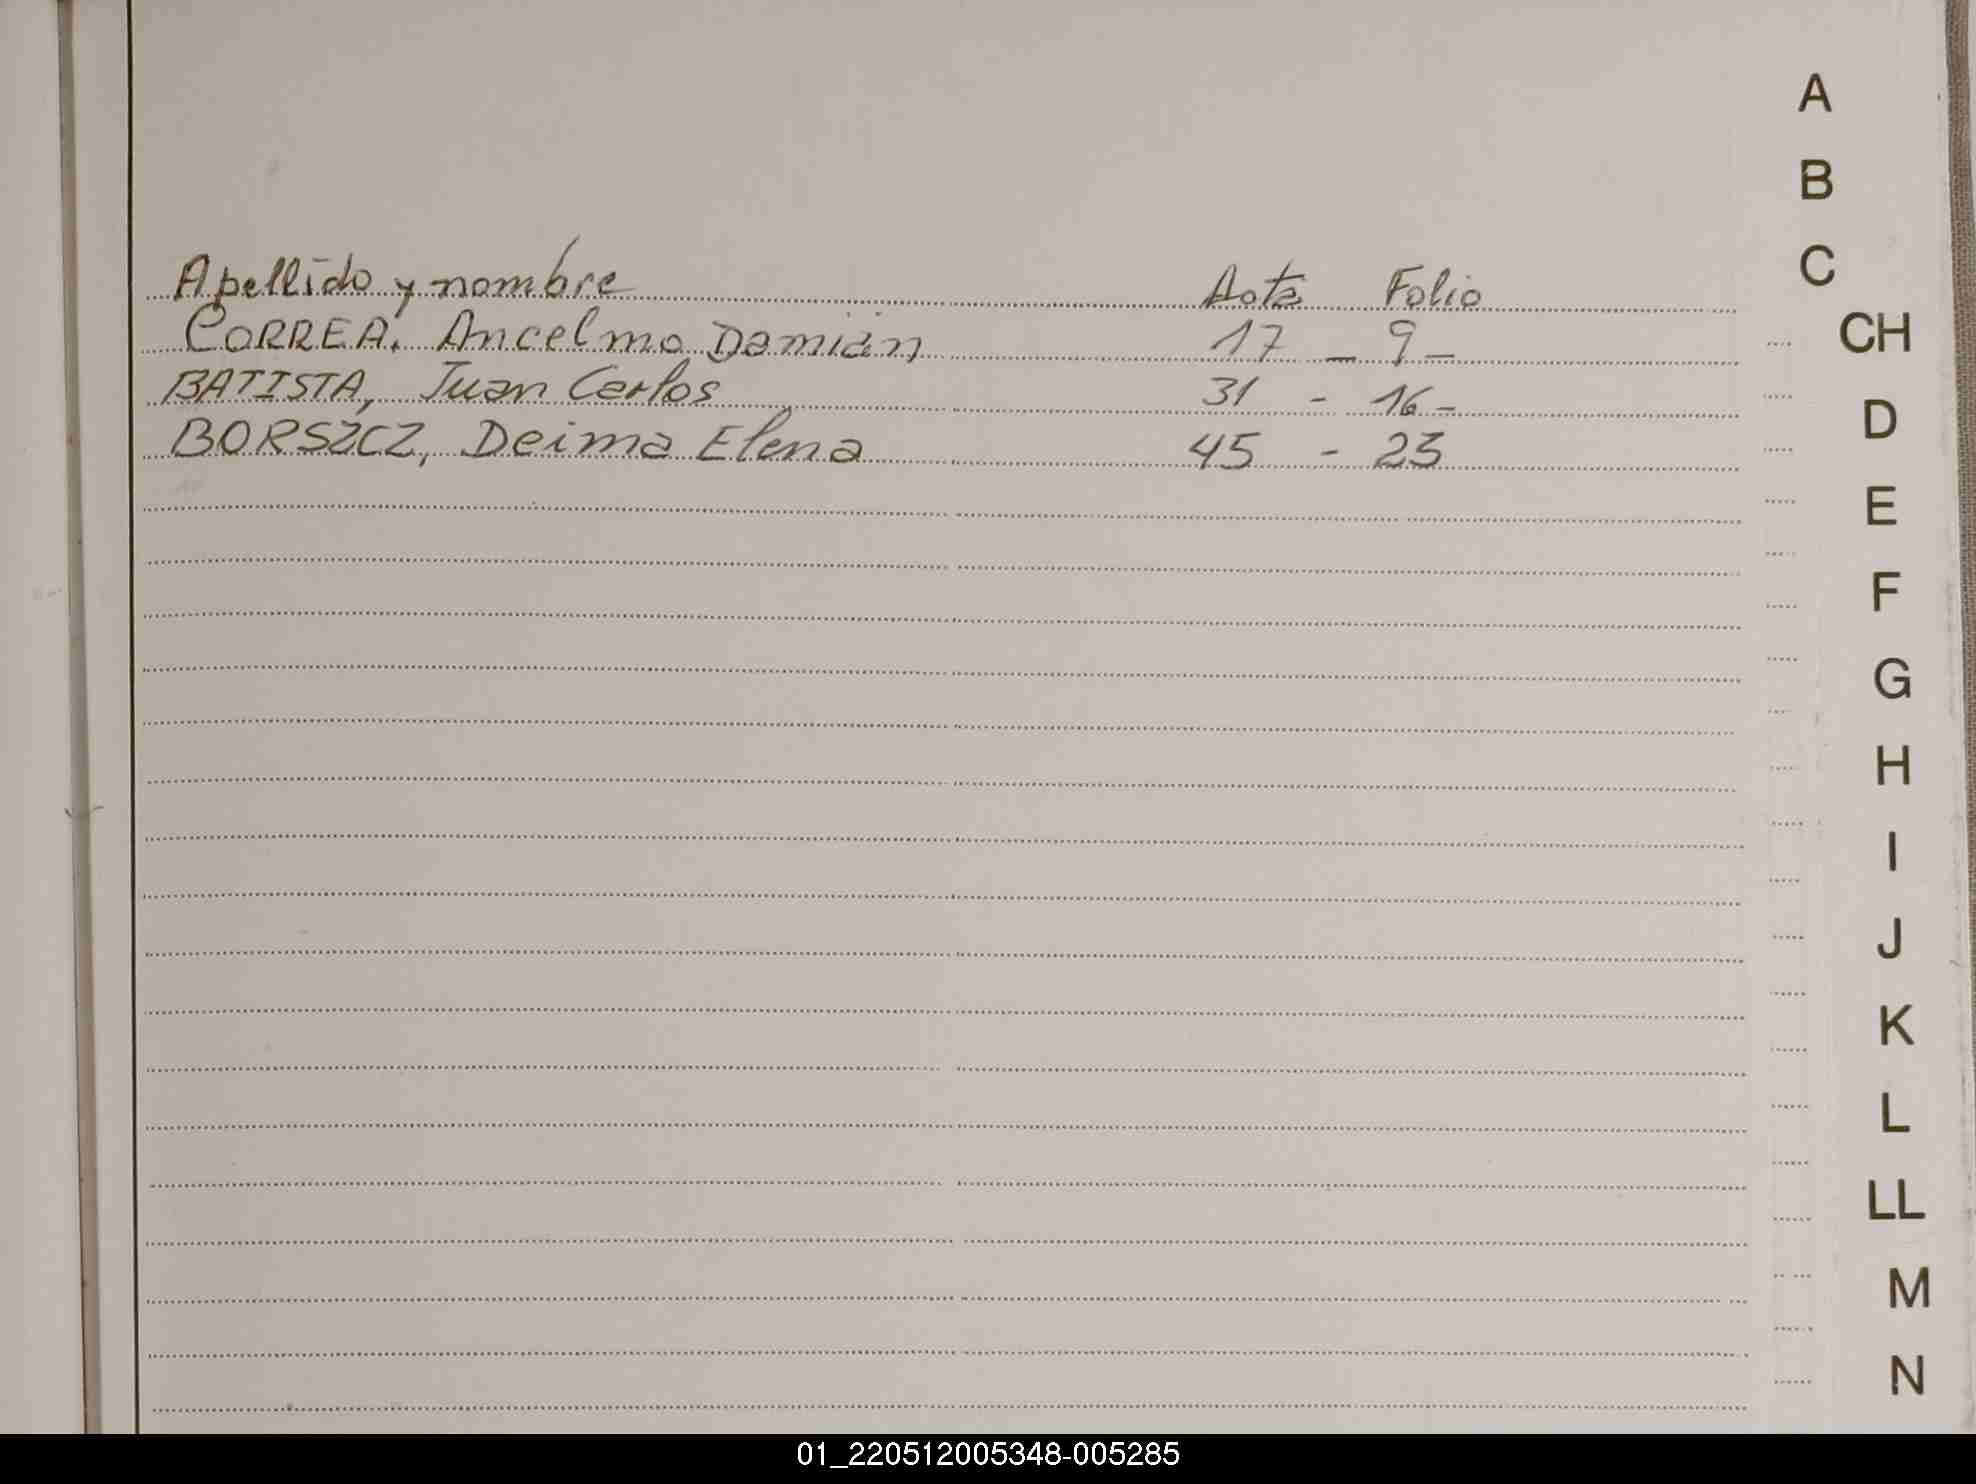 Apellido y nombre Acta Folio
CORREA, Ancelmo Damián 17 - 9 -
BATISTA, Juan Carlos 31 - 16 -
BORSZCZ, Deima Elena 45 - 23
A
B
C
CH
D
E
F
G
H
I
J
K
L
LL
M
N
01_220512005348-005285